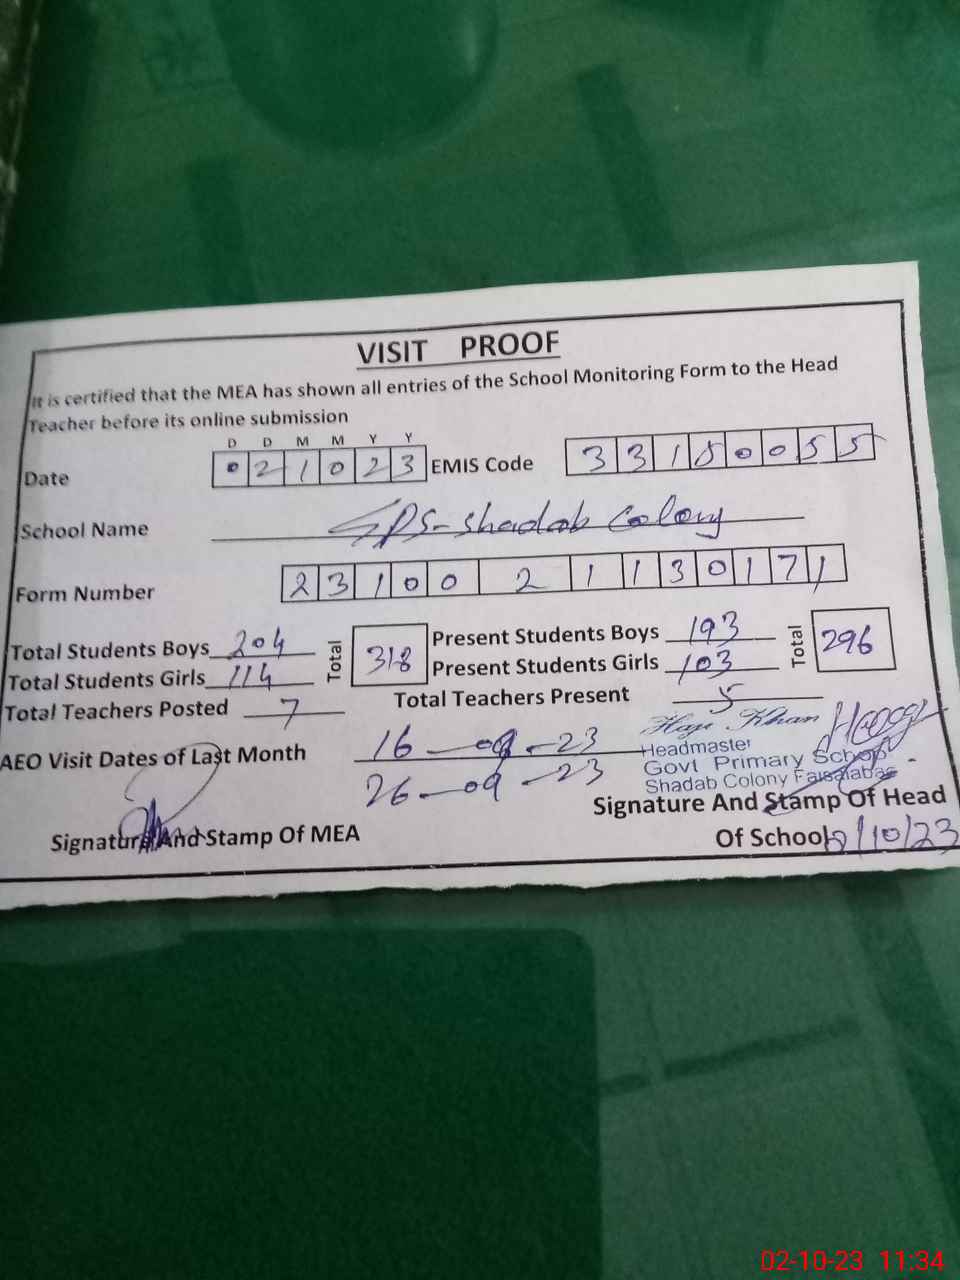 VISIT PROOF
It is certified that the MEA has shown all entries of the School Monitoring Form to the Head
Teacher before its online submission
D D M M Y Y
Date 0 2 1 0 2 3 EMIS Code 3 3 1 5 0 0 5 5
School Name GPS-Shadab Colony
Form Number 2 3 1 0 0 2 1 1 3 0 1 7 1
Total Students Boys 204 Total 318 Present Students Boys 193 Total 296
Total Students Girls 114 Present Students Girls 103
Total Teachers Posted 7 Total Teachers Present 5
AEO Visit Dates of Last Month 16-09-23
26-09-23
Haji Khan
Headmaster
Govt Primary School
Shadab Colony Faisalabad
Signature And Stamp Of MEA
Signature And Stamp Of Head
Of School 2/10/23
02-10-23 11:34